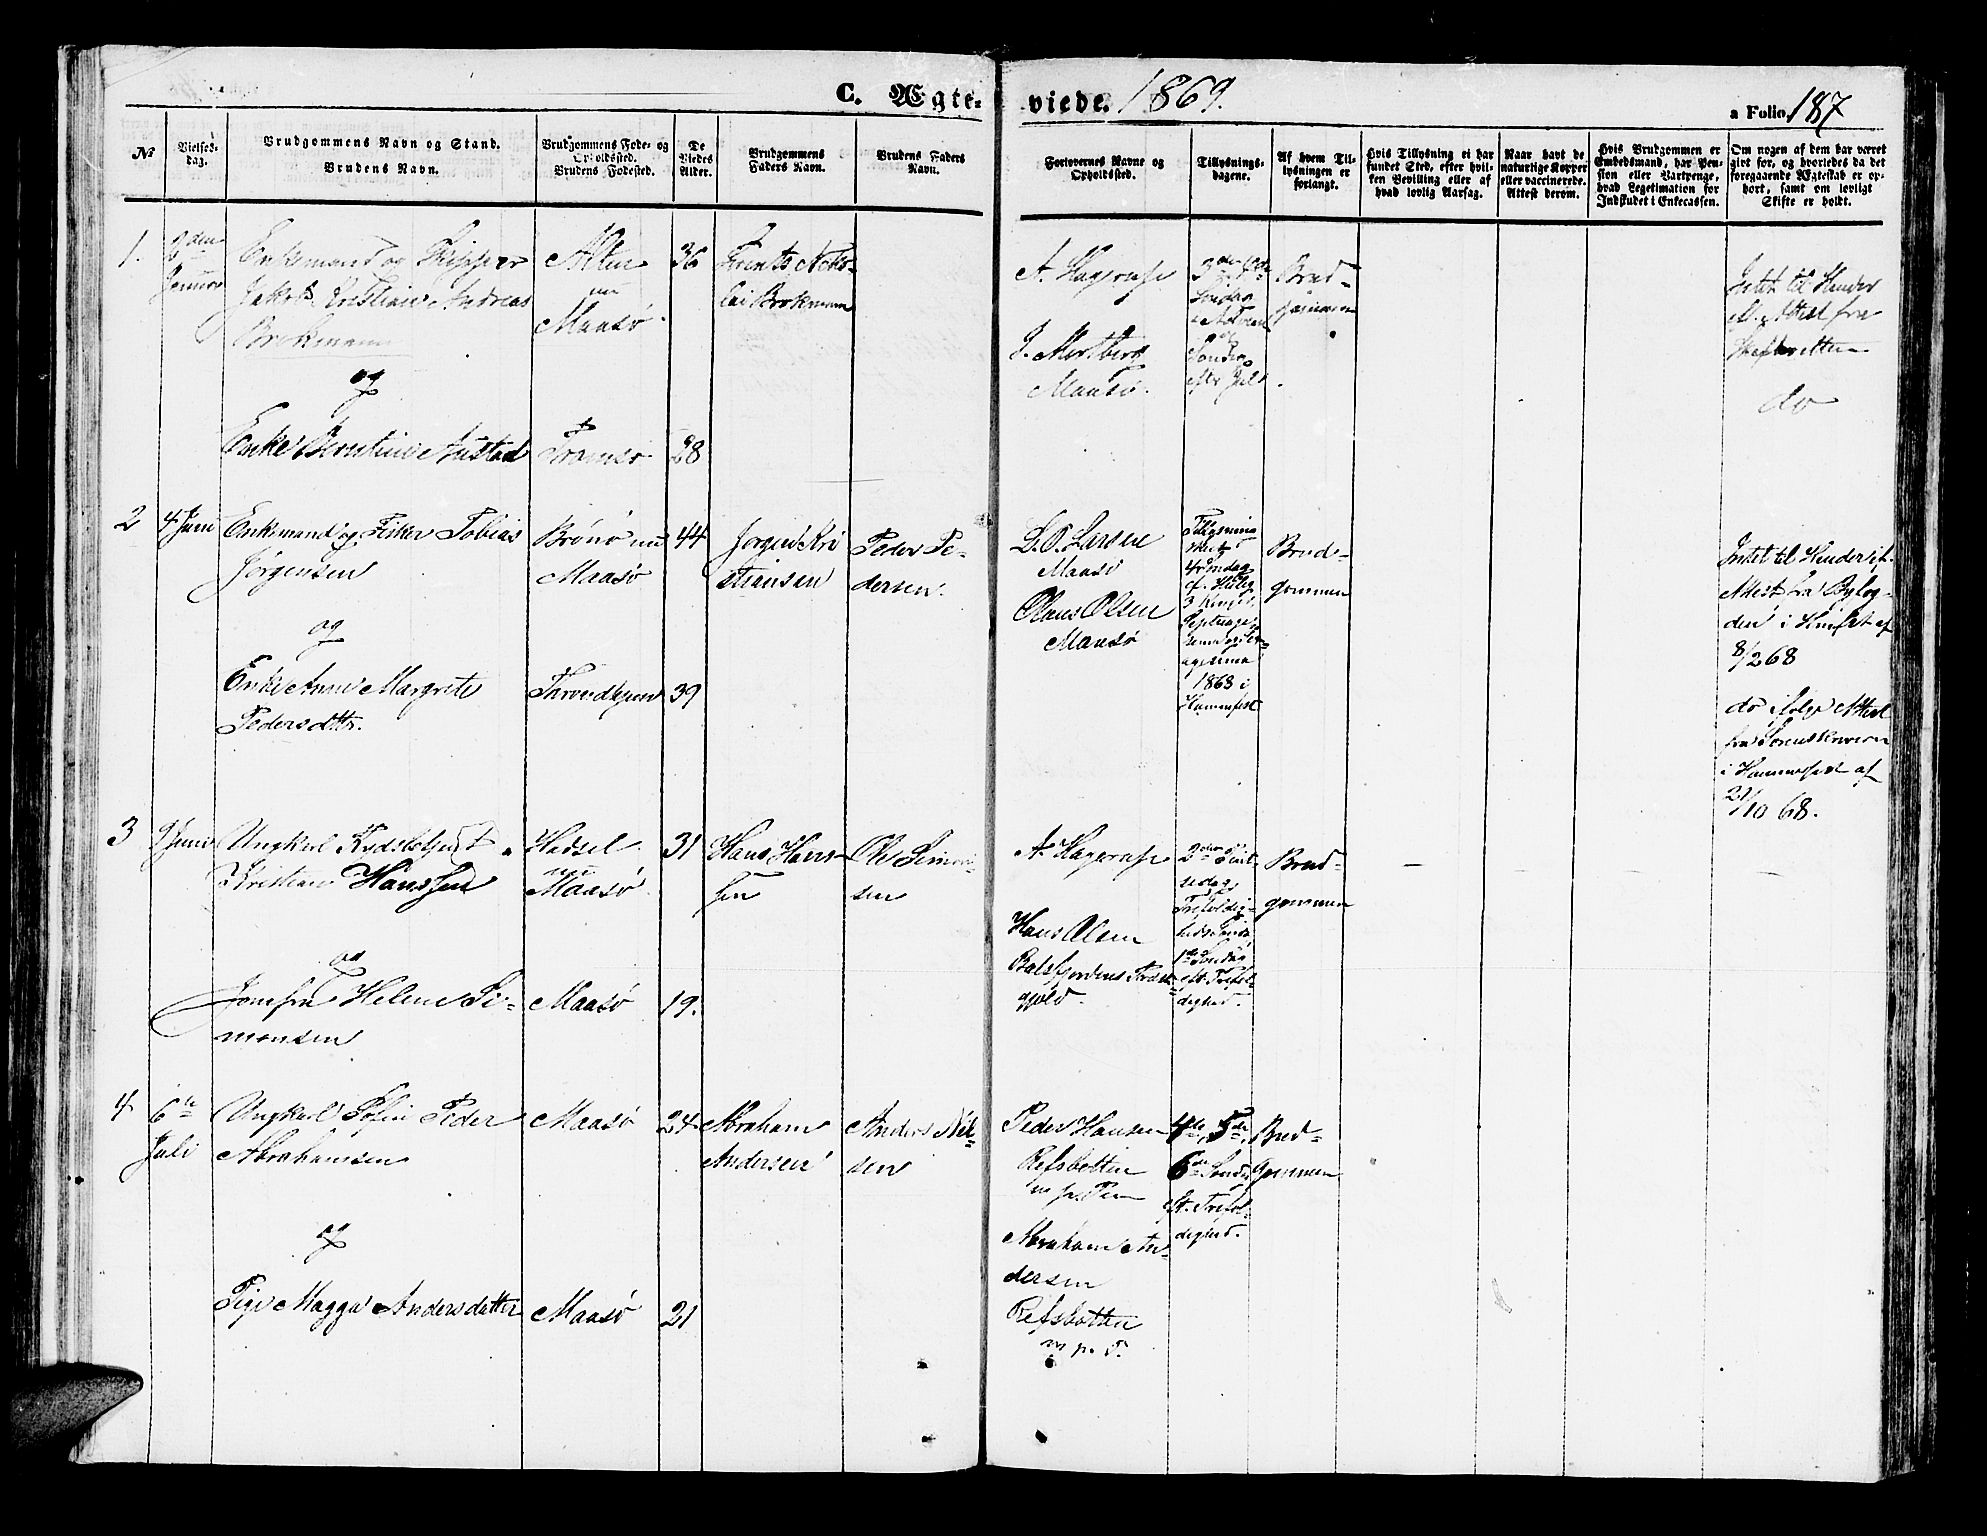 C. Ægte-
viede. 1869.
a Folio 187
No
Vielses-
dag.
Brudgommens Navn og Stand.
Brudens Navn.
Brudgommens Føde- og
Opholdssted.
Brudens Fødested.
De
Viedes
Alder.
Brudgommens
Faders Navn.
Brudens Faders
Navn.
Forlovernes Navne og
Opholdssted.
Tillysnings-
dagene.
Af hvem Til-
lysningen er
forlangt.
Hvis Tillysning ei har
fundet Sted, efter hvil-
ken Bevilling eller af
hvad lovlig Aarsag.
Naar havt de
naturlige Kopper
eller vaccinerede.
Attest derom.
Hvis Brudgommen er
Embedsmand, har Pen-
sion eller Vartpenge,
hvad Legitimation for
Indskudet i Enkecassen.
Om nogen af dem har været
gift før, og hvorledes da det
foregaaende Ægteskab er op-
hørt, samt om lovligt
Skifte er holdt.
1.
2den
Januar
Enkemand og Skipper
Jakob Kristian Andreas
Brokmann
og
Enke Berntine Austad
Alten
nu
Maasø
Tromsø
36
28
Niko-
lai Brokmann
A. Hagerup
J. Mortberg
Maasø.
3die 4de
Søndag
i Advent
og
Søndag
efter Jul
Brud-
gommen
Intet til Hinder
Attest fra
Skifteretten
do
2
4 Juni
Enkemand og Fisker Tobias
Jørgensen
og
Enke Anne Margrete
Pedersdttr.
Brønø nu
Maasø
Throndhjem
44
39
Jørgen Kri
stiansen
Peder Pe-
dersen
L. O. Larsen
Maasø
Olaus Olsen
Maasø
Tillysning
skeet
4 Søndag
ef. Hellig
3 Konger,
Septuage-
sima og Sex-
agesima
1868 i
Hammerfest
Brud-
gommen
Intet til Hinder if.
Attest fra Byfog-
den i Hmfst af
8/2 68
do ifølge Attest
fra Sorenskriveren
i Hammerfest af
21/10 68.
3
9 Juni
Ungkarl
Kristian Hanssen
og
Jomfru Helene Si-
monsen
Hadsel
nu
Maasø
Maasø
31
19.
Hans Hans-
sen
Ole Simon-
sen
A. Hagerup
Hans Olsen
Balsfjordens Præste-
gjeld.
2den Pint-
sedag,
Trefoldig-
heds Sønd.
1ste Søndag
eft. Trefol-
dighed.
Brud-
gommen
4
6te
Juli
Ungkarl Peder
Abrahamsen
og
Pige Magga Andersdatter
Maasø
Maasø
24
21
Abraham
Andersen
Anders Nil-
sen
Peder Hansen
Refsbotten
m p. Pen
Abraham An-
dersen
Refsbotten
m p. P.
4de, 5te,
6te Søndag
eft. Trefol-
dighed.
Brud-
gommen